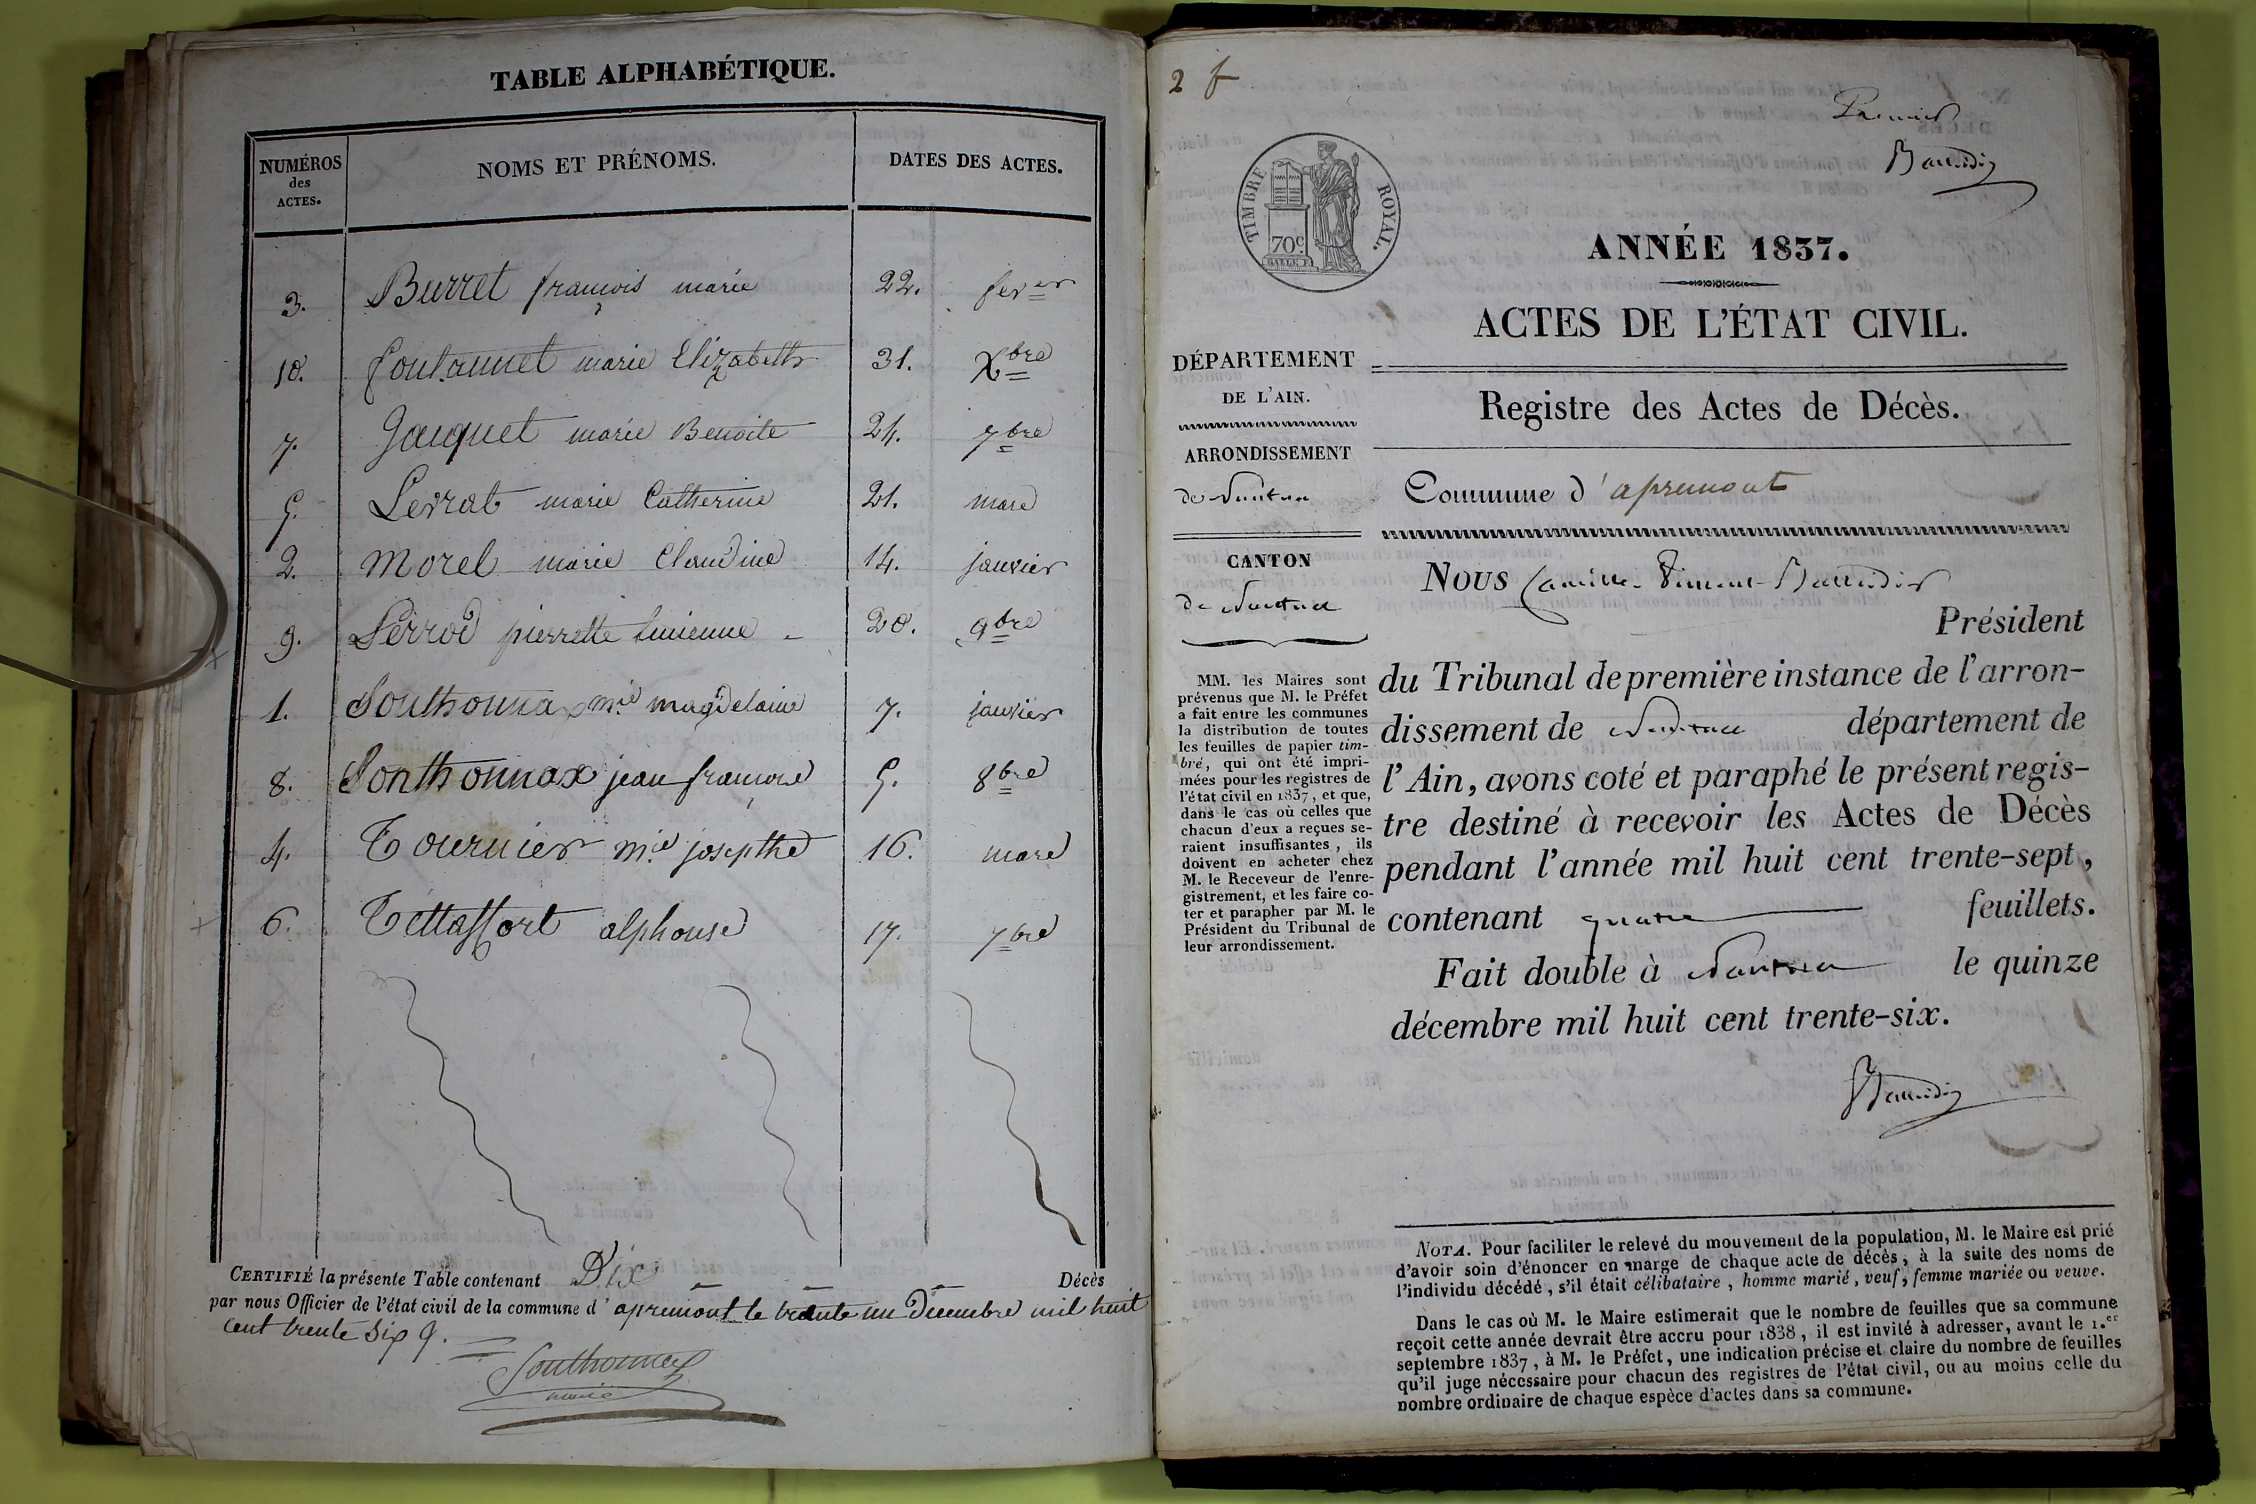 TABLE ALPHABÉTIQUE.
NUMÉROS des ACTES. NOMS ET PRÉNOMS. DATES DES ACTES.
3. Burret françois marie 22. fever
10. fontannet marie Elizabeth 31. Xbre
7. Jacquet marie Benoite 24. 7bre
5. Levrat marie Catherine 21. mars
2. Morel marie Claudine 14. janvier
9. Perrod pierrette 20. 9bre
1. Sonthonnax mie magdelaine 7. janvier
8. Sonthonnax jean françois 5. 8bre
4. Tournier mie josepthe 16. mars
6. Tettaffort alphonse 17. 7bre
CERTIFIÉ la présente Table contenant Dix Décès
par nous Officier de l'état civil de la commune d' apremont le trente un Décembre mil huit
cent trente six
Sonthonnax
maire
2 f
Premier
Baudin
TIMBRE ROYAL.
70c
ANNÉE 1837.
ACTES DE L'ÉTAT CIVIL.
DÉPARTEMENT
DE L'AIN.
Registre des Actes de Décès.
ARRONDISSEMENT
de Nantua
Commune d' apremont
CANTON
de Nantua
MM. les Maires sont
prévenus que M. le Préfet
a fait entre les communes
la distribution de toutes
les feuilles de papier tim-
bré, qui ont été impri-
mées pour les registres de
l'état civil en 1837, et que,
dans le cas où celles que
chacun d'eux a reçues se-
raient insuffisantes, ils
doivent en acheter chez
M. le Receveur de l'enre-
gistrement, et les faire co-
ter et parapher par M. le
Président du Tribunal de
leur arrondissement.
Nous Camille
Président
du Tribunal de première instance de l'arron-
dissement de Nantua département de
l'Ain, avons coté et paraphé le présent regis-
tre destiné à recevoir les Actes de Décès
pendant l'année mil huit cent trente-sept,
contenant quatre feuillets.
Fait double à Nantua le quinze
décembre mil huit cent trente-six.
Baudin
NOTA. Pour faciliter le relevé du mouvement de la population, M. le Maire est prié
d'avoir soin d'énoncer en marge de chaque acte de décès, à la suite des noms de
l'individu décédé, s'il était célibataire, homme marié, veuf, femme mariée ou veuve.
Dans le cas où M. le Maire estimerait que le nombre de feuilles que sa commune
reçoit cette année devrait être accru pour 1838, il est invité à adresser, avant le 1.er
septembre 1837, à M. le Préfet, une indication précise et claire du nombre de feuilles
qu'il juge nécessaire pour chacun des registres de l'état civil, ou au moins celle du
nombre ordinaire de chaque espèce d'actes dans sa commune.